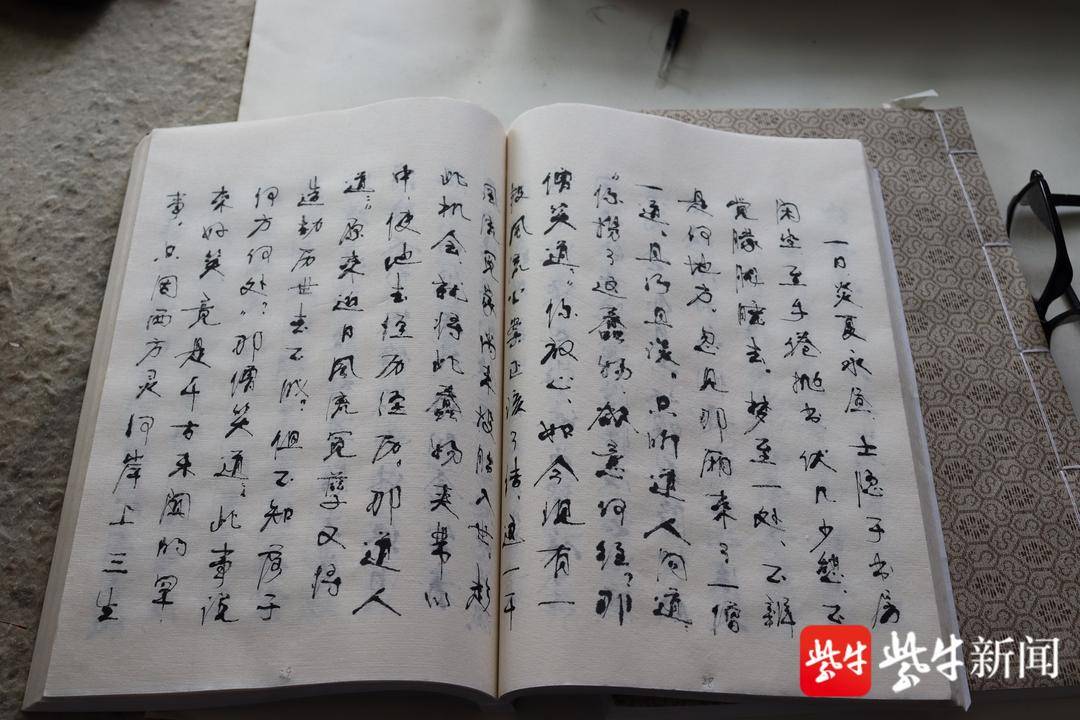 一日炎夏永昼,士隐于书房
闲坐至手捲抛书,伏几少憩,不
觉朦胧睡去,梦至一处、不辨
是何地方。忽见那厢来了一僧
一道,且行且谈。只听道人问道:
“你携了这蠢物,欲意何往?那
僧笑道:“你放心,如今现有一
段风流公案正该了结,这一干
风流冤家尚未投胎入世,趁
此机会就将此蠢物夹带以
中,使他去经历经历。那道人
道:原来近日风流冤孽又将
造劫历世去不成?但不知落于
何方何处?”那僧笑道:此事说
来好笑竟是千古未闻的罕
事。只因西方灵河岸上三生
紫牛
紫牛新闻